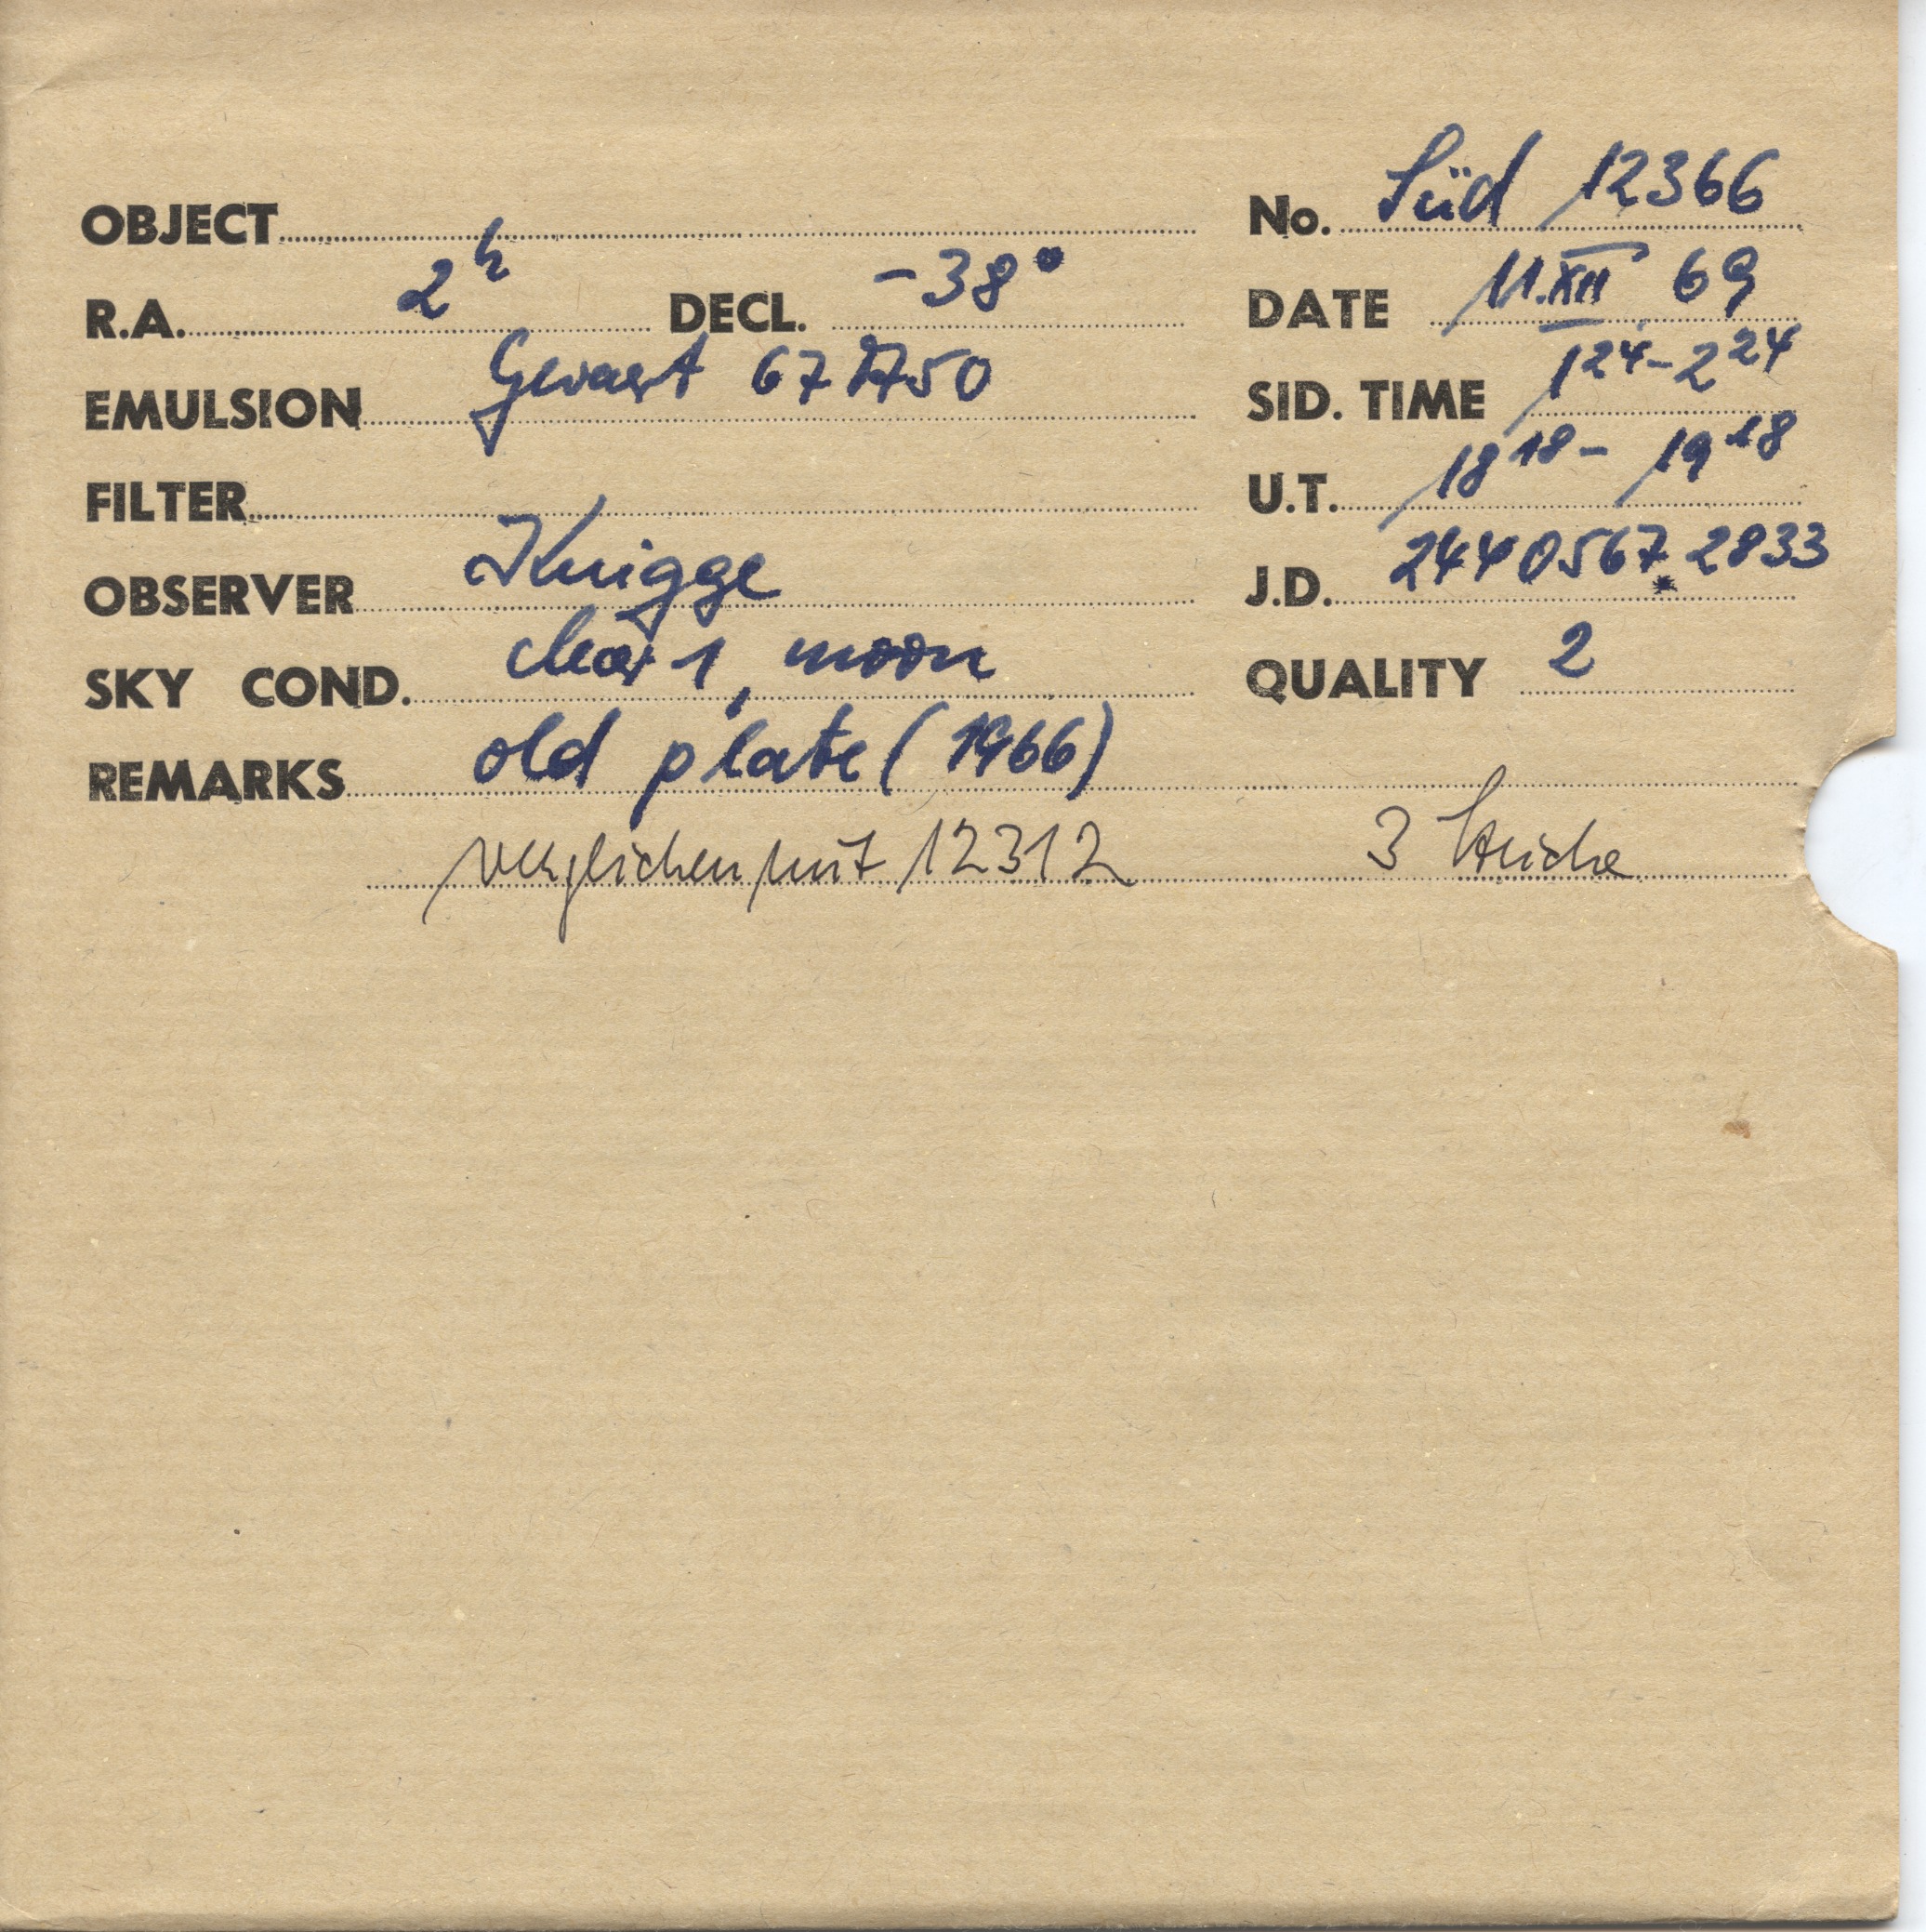 OBJECT
No. Süd 12366
R.A. 2h DECL. -38°
DATE 11.XII 69
EMULSION Gevaert 67A50
SID. TIME 1 24 - 2 24
FILTER
U.T. 18 18 - 19 18
OBSERVER Knigge
J.D. 2440567.2833
SKY COND. clear 1, moon
QUALITY 2
REMARKS old plate (1966)
verglichen mit 12312 3 Striche